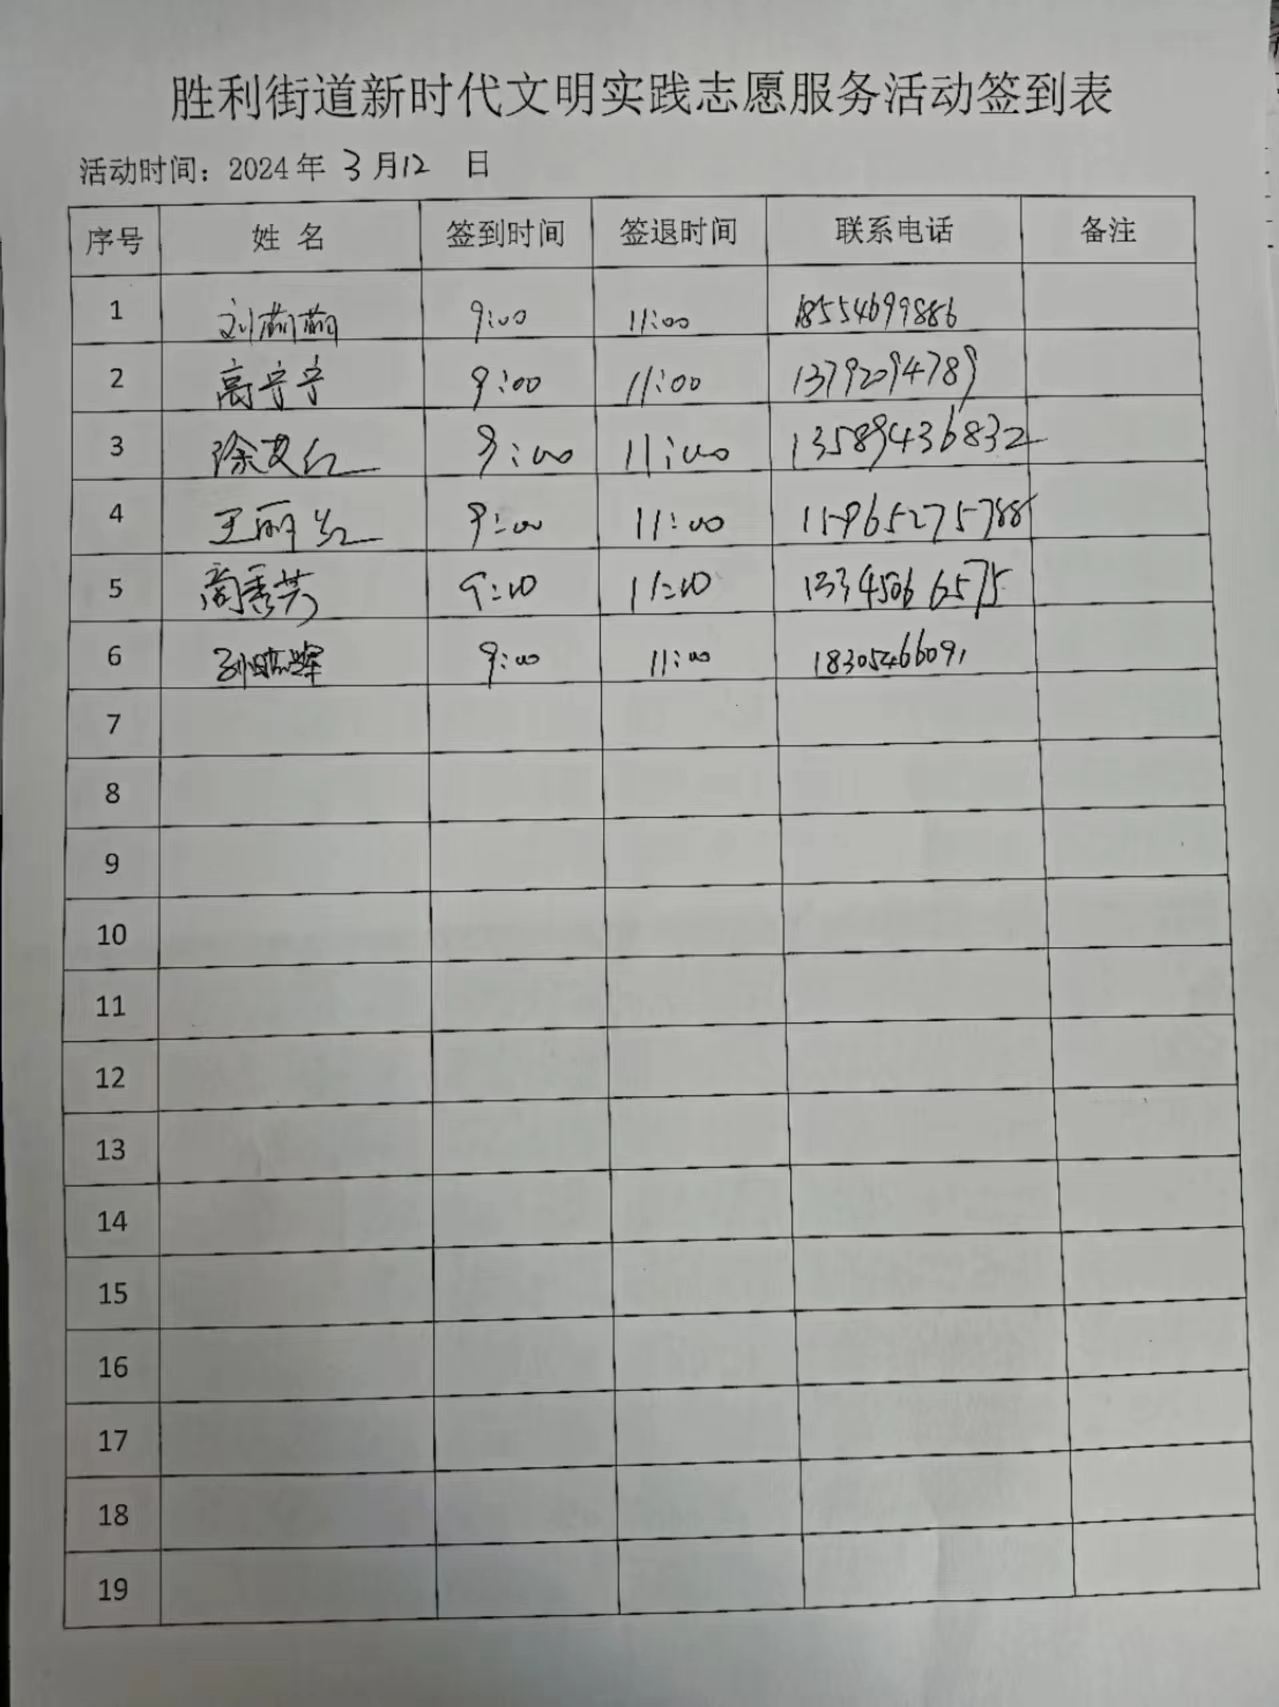 胜利街道新时代文明实践志愿服务活动签到表
活动时间：2024年 3月12 日
序号 姓 名 签到时间 签退时间 联系电话 备注
1 刘萌萌 9:00 11:00 18554699886
2 高宁宁 9:00 11:00 13792094789
3 徐艾红 9:00 11:00 13589436832
4 王丽红 9:00 11:00 15965275788
5 商秀芳 9:00 11:00 13345066575
6 9:00 11:00 18305466091
7
8
9
10
11
12
13
14
15
16
17
18
19